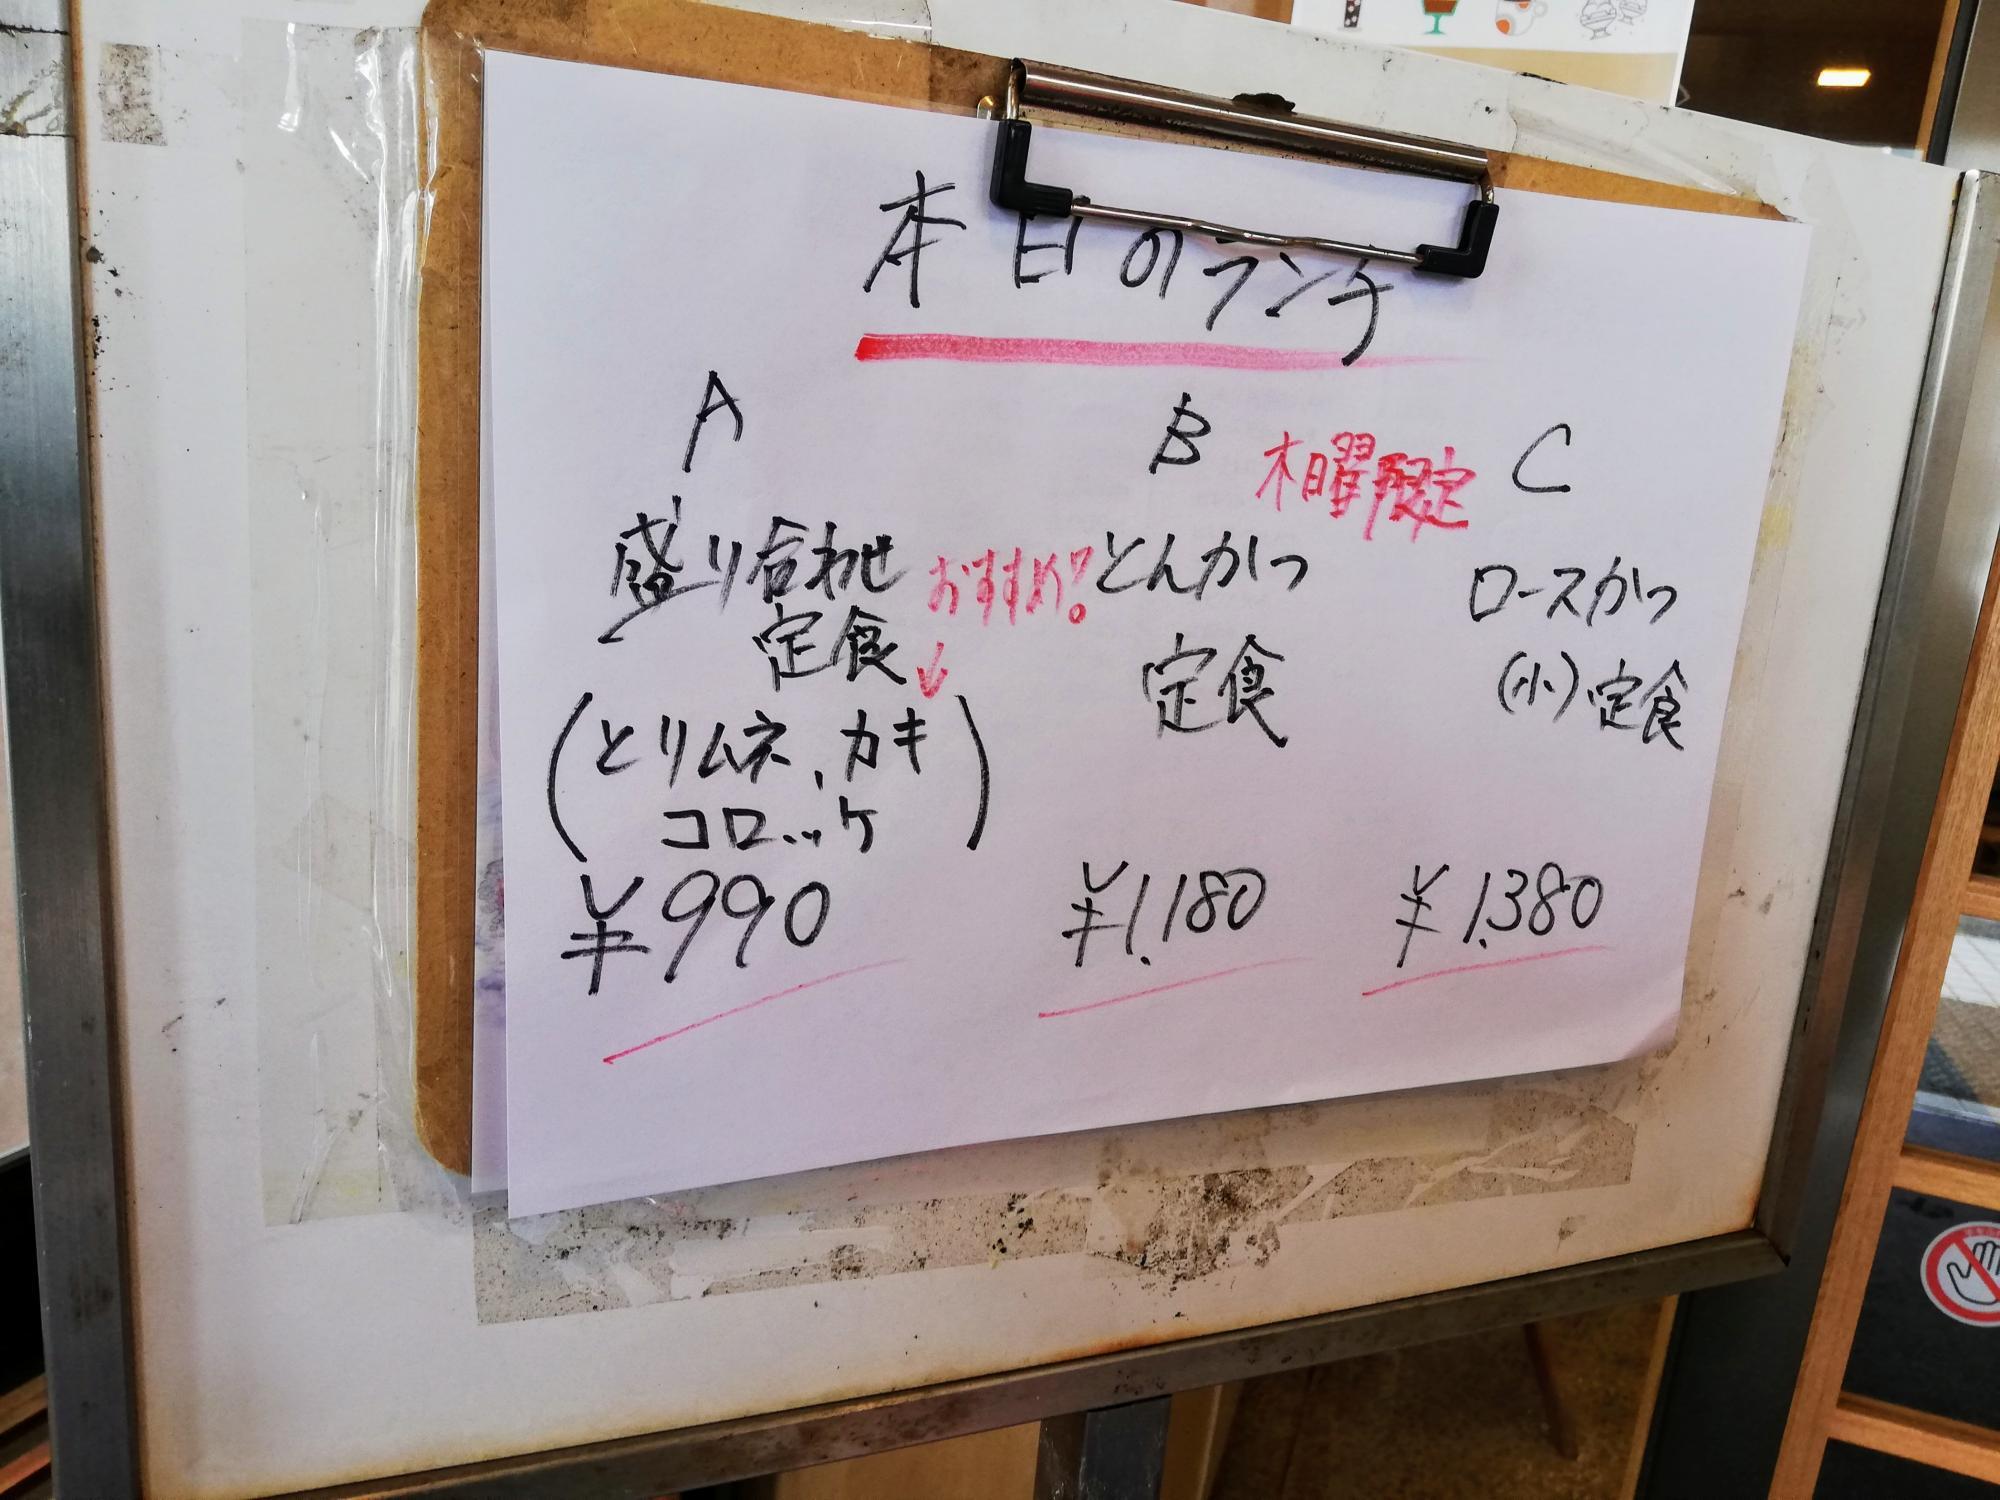 本日のランチ
A
盛り合わせ
定食
おすすめ!
↓
(とりムネ、カキ
コロッケ)
¥990
B
木曜限定
とんかつ
定食
¥1.180
C
ロースかつ
(小)定食
¥1.380